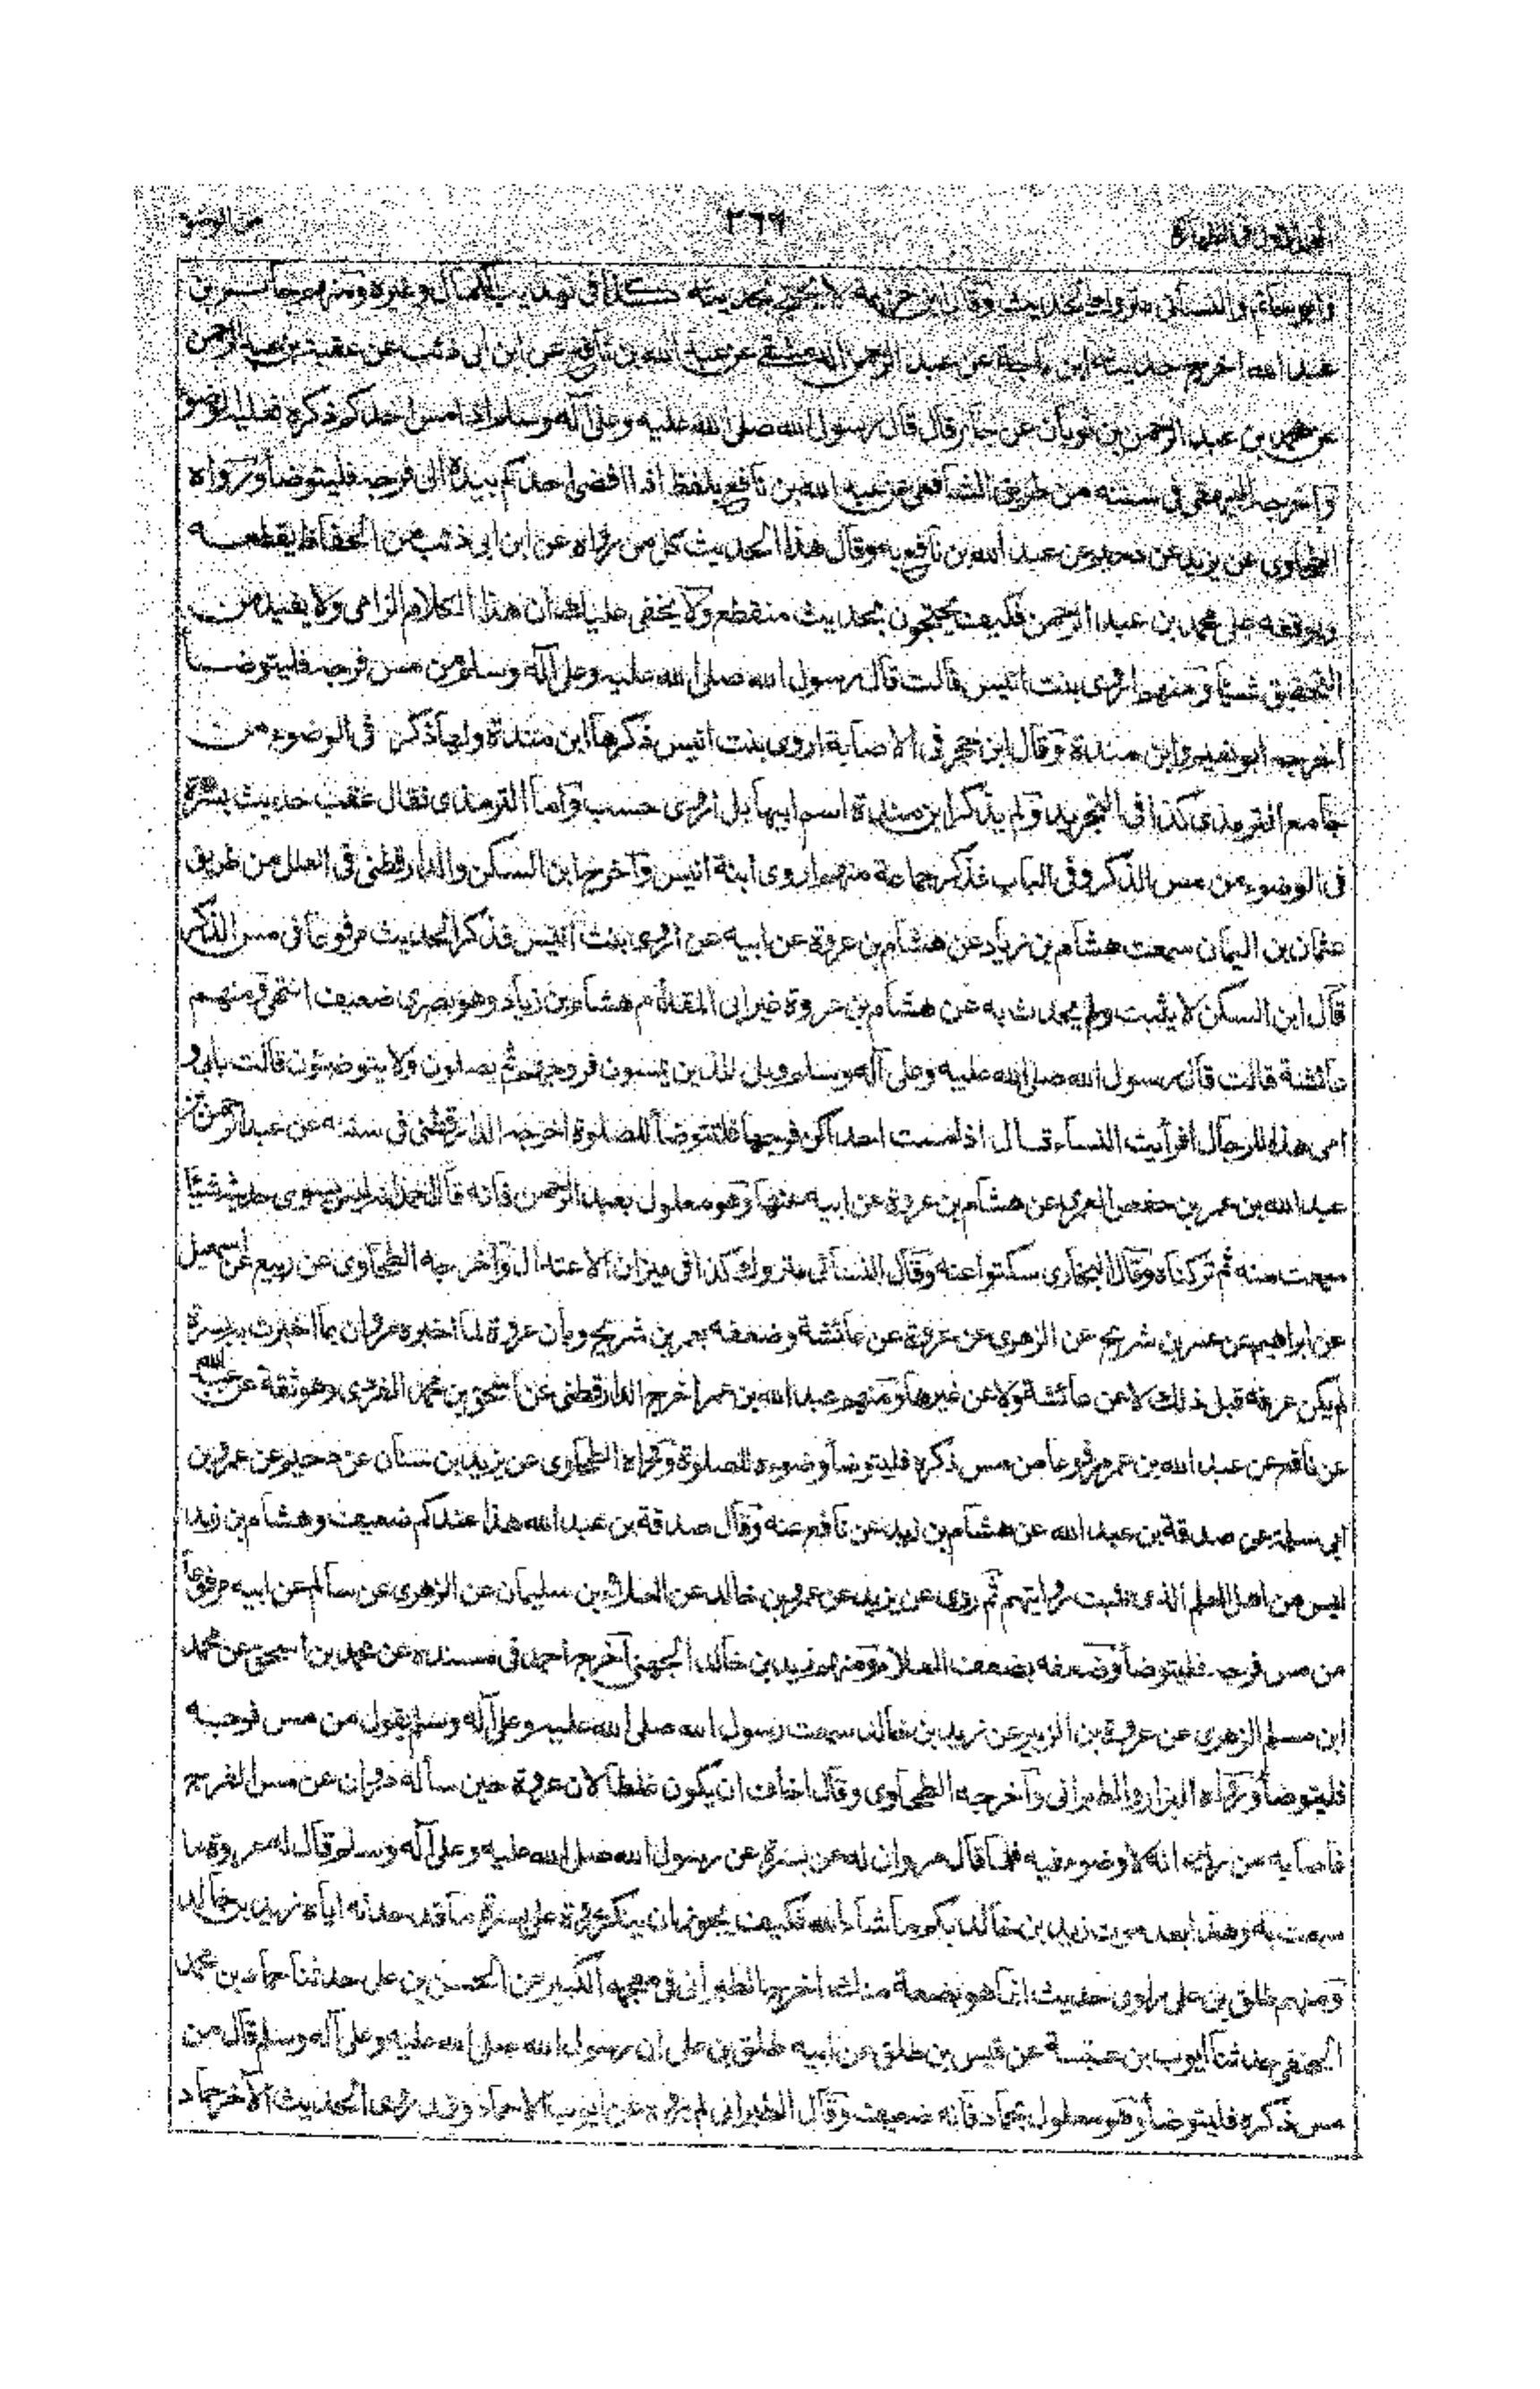 ٢٦٩
وابو حاتم والنسائي متروك الحديث وقال ابن خزيمة لا يحتج بحديثه كذا في تهذيب الكمال وغيره ومنهم جابر بن
عبد الله اخرج حديثه ابن ماجة عن عبد الرحمن الدمشقي عن عبد الله بن نافع عن ابن ابي ذئب عن عقبة بن عبد الرحمن
عن محمد بن عبد الرحمن بن ثوبان عن جابر قال قال رسول الله صلى الله عليه وعلى آله وسلم اذا مس احدكم ذكره فعليه الوضوء
وآخرجه البيهقي في سننه من طريق الشافعي عن عبد الله بن نافع بلفظ اذا افضى احدكم بيده الى فرجه فليتوضأ ورواه
الطحاوي عن يزيد عن دحيم عن عبد الله بن نافع به وقال هذا الحديث كل من رواه عن ابن ابي ذئب من الحفاظ يقطعه
ويوقفه على محمد بن عبد الرحمن فكيف يحتجون بحديث منقطع ولا يخفى عليك ان هذا الكلام الزامي ولا يفيد من
التحقيق شيئا ومنهم اروى بنت انيس قالت قال رسول الله صلى الله عليه وعلى آله وسلم من مس فرجه فليتوضأ
اخرجه ابو نعيم وابن مندة وقال ابن حجر في الاصابة اروى بنت انيس ذكرها ابن مندة ولها ذكر في الوضوء من
جامع الترمذي كذا في التجريد ولم يذكر ابن مندة اسم ابيها بل اروى حسب واما الترمذي فقال عقب حديث بسرة
في الوضوء من مس الذكر وفي الباب فذكر جماعة منهم اروى ابنة انيس وآخرجها ابن السكن والدارقطني في العلل من طريق
عثمان بن اليمان سمعت هشام بن زياد عن هشام بن عروة عن ابيه عن اروى بنت انيس فذكر الحديث مرفوعا في مس الذكر
قال ابن السكن لا يثبت ولم يحدث به عن هشام بن عروة غير ابي المقدام هشام بن زياد وهو بصري ضعيف انتهى ومنهم
عائشة قالت قال رسول الله صلى الله عليه وعلى آله وسلم ويل للذين يمسون فروجهم ثم يصلون ولا يتوضئون قالت بابي و
امي هذا للرجال افرأيت النساء قال اذا مست احداكن فرجها فلتتوضأ للصلوة اخرجه الدارقطني في سننه عن عبد الرحمن بن
عبد الله بن عمر بن حفص العمري عن هشام بن عروة عن ابيه عنها وهو معلول بعبد الرحمن فانه قال احمد انه ليس يسوى حديثه شيئا
سمعت منه ثم تركناه وقال البخاري سكتوا عنه وقال النسائي متروك كذا في ميزان الاعتدال وآخرجه الطحاوي عن ربيع عن اسمعيل
عن ابراهيم عن عمر بن شريح عن الزهري عن عروة عن عائشة وضعفه بعمر بن شريح وبان عروة لما اخبره مروان بما اخبرت به بسرة
لم يكن عرفه قبل ذلك لا عن عائشة ولا عن غيرها ومنهم عبد الله بن عمر اخرج الدارقطني عن اسحق بن محمد الفروي وهو ثقة عن عبد الله
عن نافع عن عبد الله بن عمر مرفوعا من مس ذكره فليتوضأ وضوءه للصلوة ورواه الطحاوي عن يزيد بن سنان عن دحيم عن عمرو بن
ابي سلمة عن صدقة بن عبد الله عن هشام بن زيد عن نافع عنه وقال صدقة بن عبد الله هذا عندكم ضعيف وهشام بن زيد
ليس من اهل العلم الذي تثبت روايتهم ثم روى عن يزيد عن عمرو بن خالد عن العلاء بن سليمان عن الزهري عن سالم عن ابيه مرفوعا
من مس فرجه فليتوضأ وضعفه بضعف العلاء ومنهم زيد بن خالد الجهني آخرجه احمد في مسنده عن محمد بن اسحق عن محمد
ابن مسلم الزهري عن عروة بن الزبير عن زيد بن خالد سمعت رسول الله صلى الله عليه وعلى آله وسلم يقول من مس فرجه
فليتوضأ ورواه البزار والطبراني وآخرجه الطحاوي وقال اخاف ان يكون غلطا لان عروة حين سأله مروان عن مس الفرج
فاجابه من رأيه انه لا وضوء فيه فلما قال مروان له عن بسرة عن رسول الله صلى الله عليه وعلى آله وسلم قال له عروة ما
سمعت به وهذا بعد موت زيد بن خالد بكم ما شاء الله فكيف يجوز ان ينكر عروة على بسرة ما قد حدثه اياه زيد بن خالد
ومنهم طلق بن علي راوي حديث انما هو بضعة منك اخرجه الطبراني في معجمه الكبير عن الحسن بن علي حدثنا حماد بن محمد
الحنفي حدثنا ايوب بن عتبة عن قيس بن طلق عن ابيه طلق بن علي ان رسول الله صلى الله عليه وعلى آله وسلم قال من
مس ذكره فليتوضأ وهو معلول بحماد فانه ضعيف وقال الطبراني لم يروه عن ايوب الا حماد وقد روى الحديث الآخر حماد